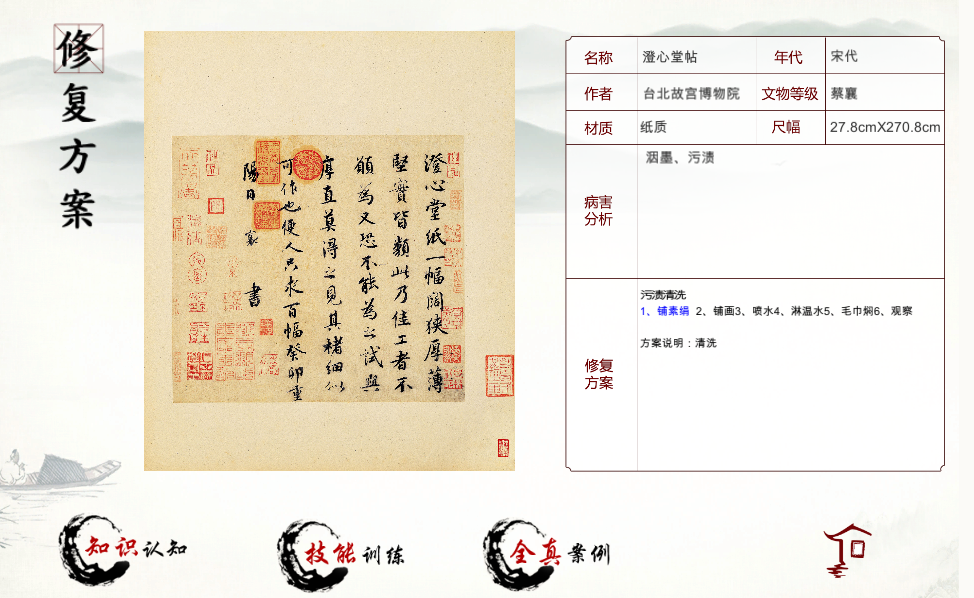 修复方案
名称 澄心堂帖 年代 宋代
作者 台北故宫博物院 文物等级 蔡襄
材质 纸质 尺幅 27.8cmX270.8cm
病害
分析
洇墨、污渍
修复
方案
污渍清洗
1、铺素绢 2、铺画3、喷水4、淋温水5、毛巾焖6、观察
方案说明：清洗
澄心堂纸一幅阔狭厚薄
堅實皆類此乃佳工者不
願為又恐不能為之試與
厚直莫得之見其楮細似
可作也便人只求百幅癸卯重
陽日 襄 書
知识认知
技能训练
全真案例